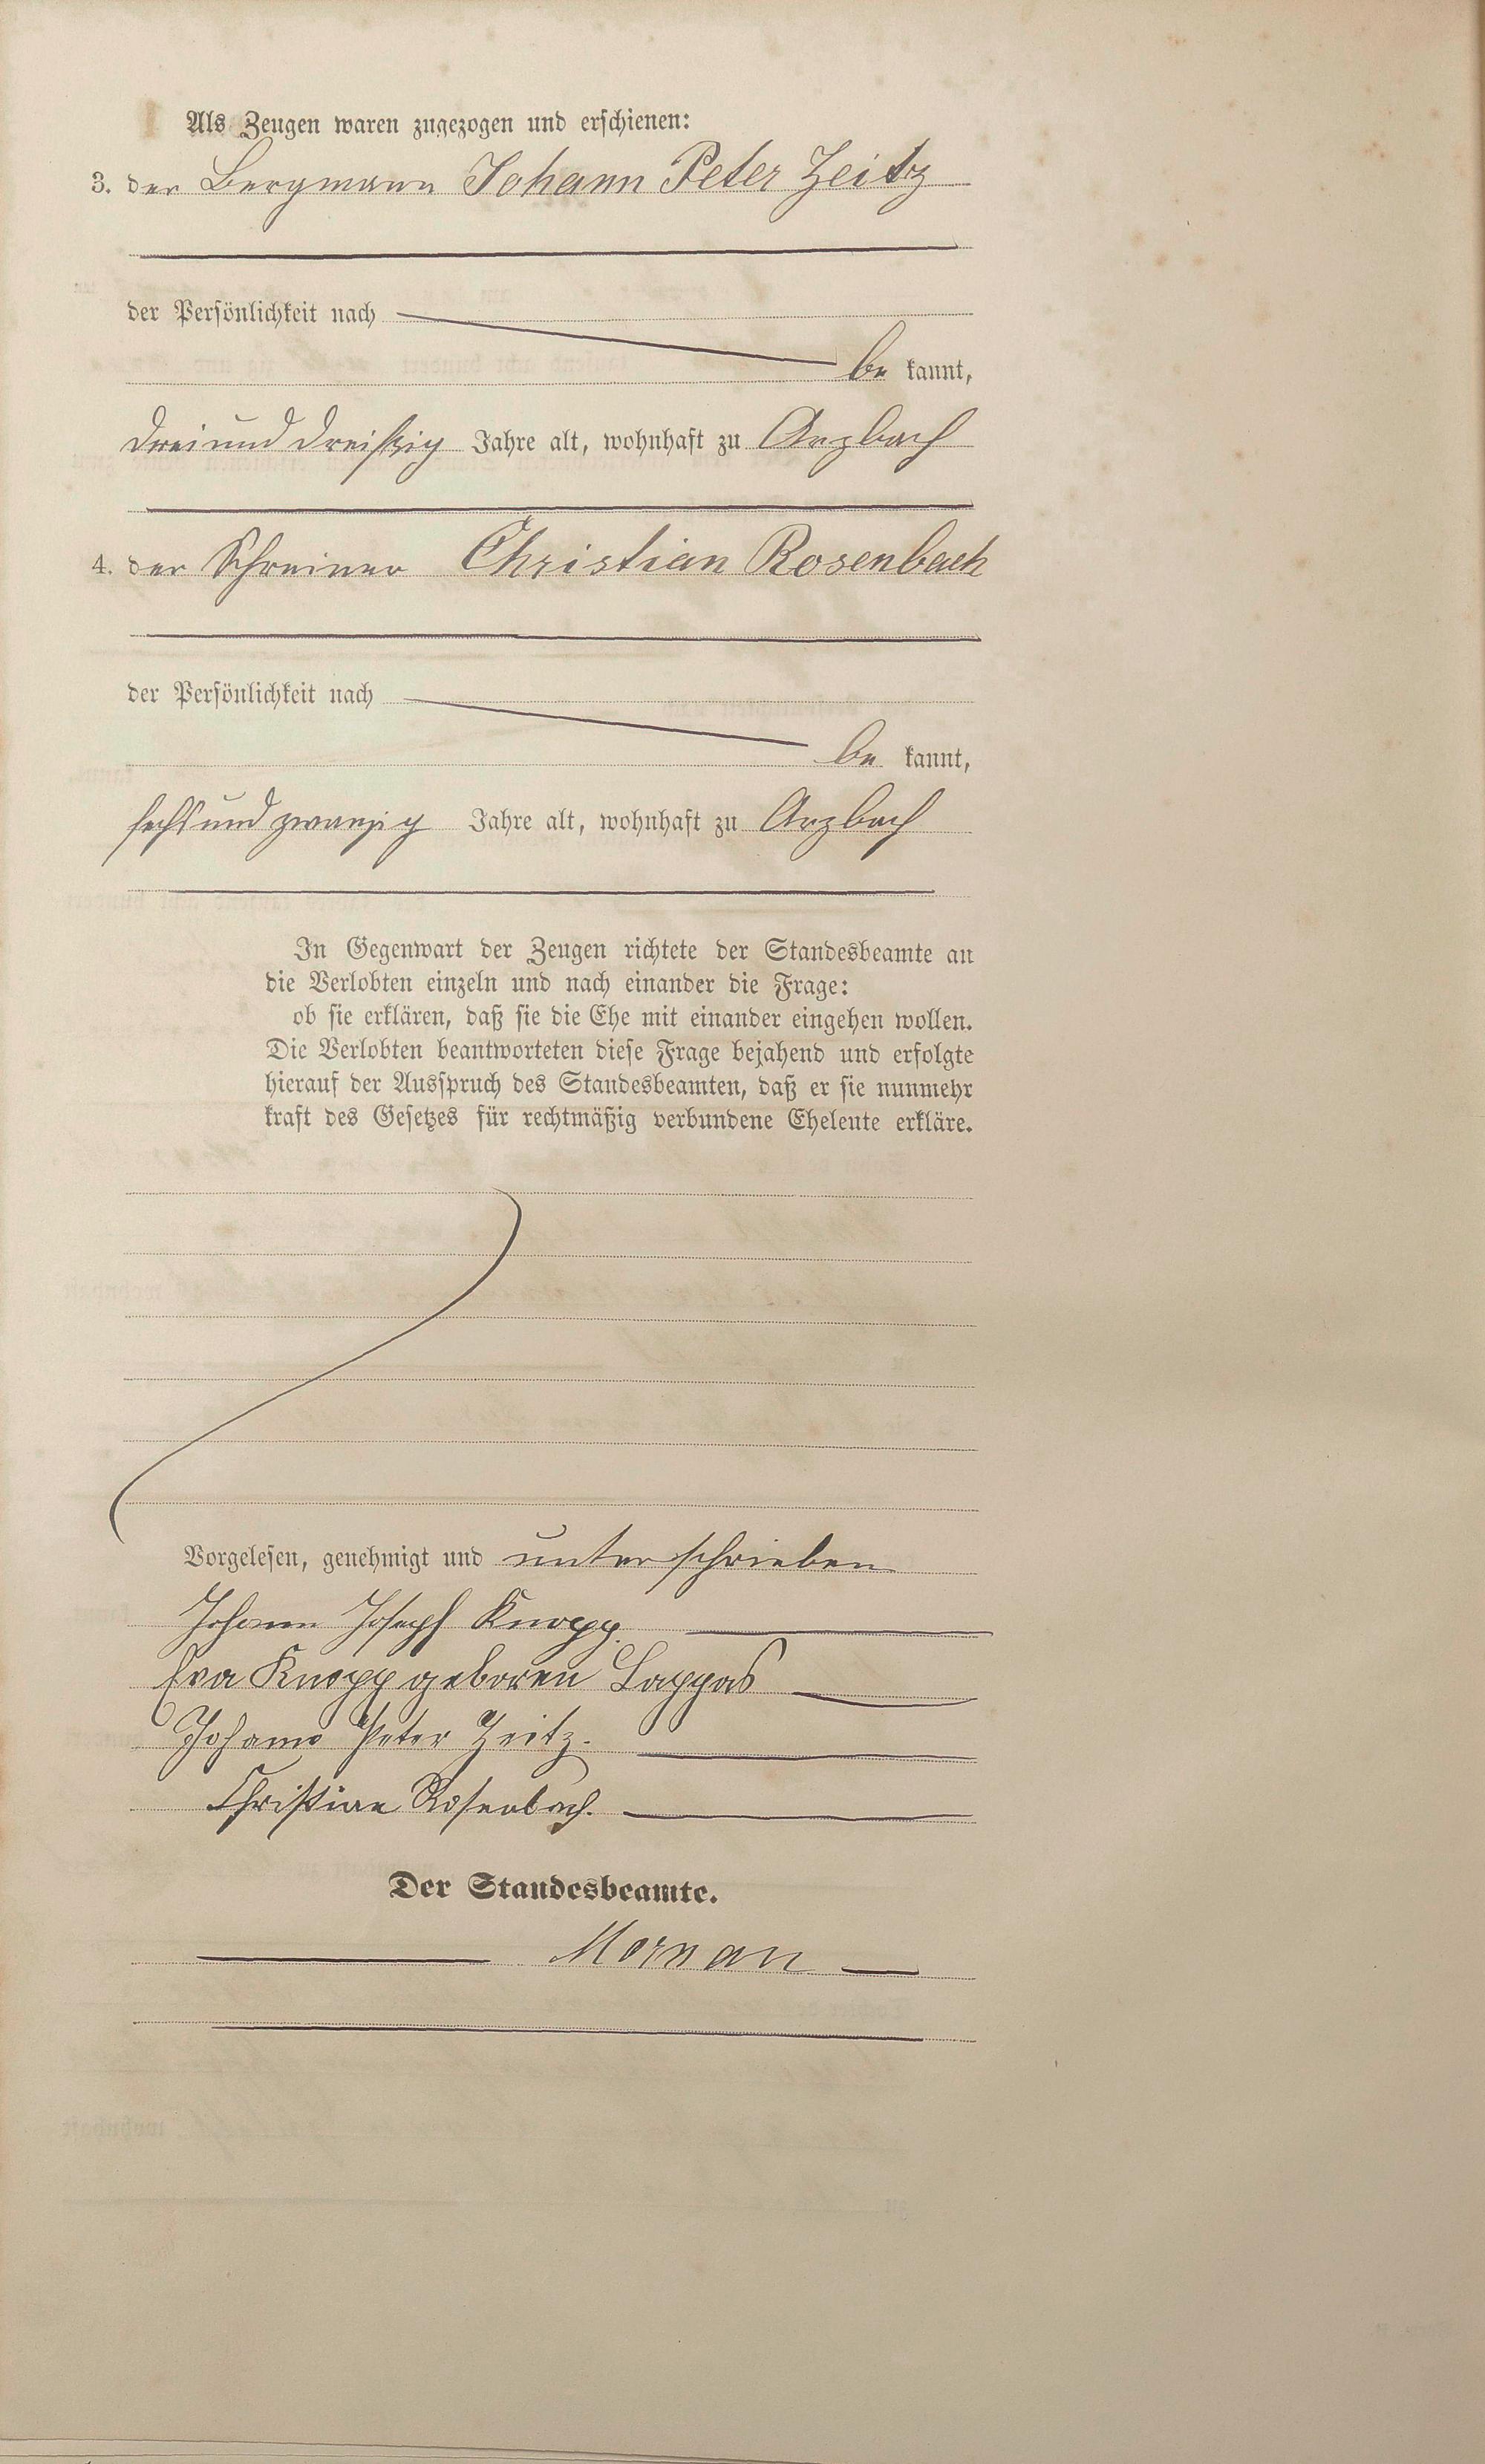 Als Zeugen waren zugezogen und erschienen:
3. der Bergmann Johann Peter Zeitz
der Persönlichkeit nach
be kannt,
dreiunddreißig Jahre alt, wohnhaft zu Arzbach
4. der Schreiner Christian Rosenbach
der Persönlichkeit nach
be kannt,
sechsundzwanzig Jahre alt, wohnhaft zu Arzbach
In Gegenwart der Zeugen richtete der Standesbeamte an
die Verlobten einzeln und nach einander die Frage:
ob sie erklären, daß sie die Ehe mit einander eingehen wollen.
Die Verlobten beantworteten diese Frage bejahend und erfolgte
hierauf der Ausspruch des Standesbeamten, daß er sie nunmehr
kraft des Gesetzes für rechtmäßig verbundene Eheleute erkläre.
Vorgelesen, genehmigt und unterschrieben
Johann Joseph Knopp.
Eva Knopp geboren Lappas
Johann Peter Zeitz.
Christian Rosenbach.
Der Standesbeamte.